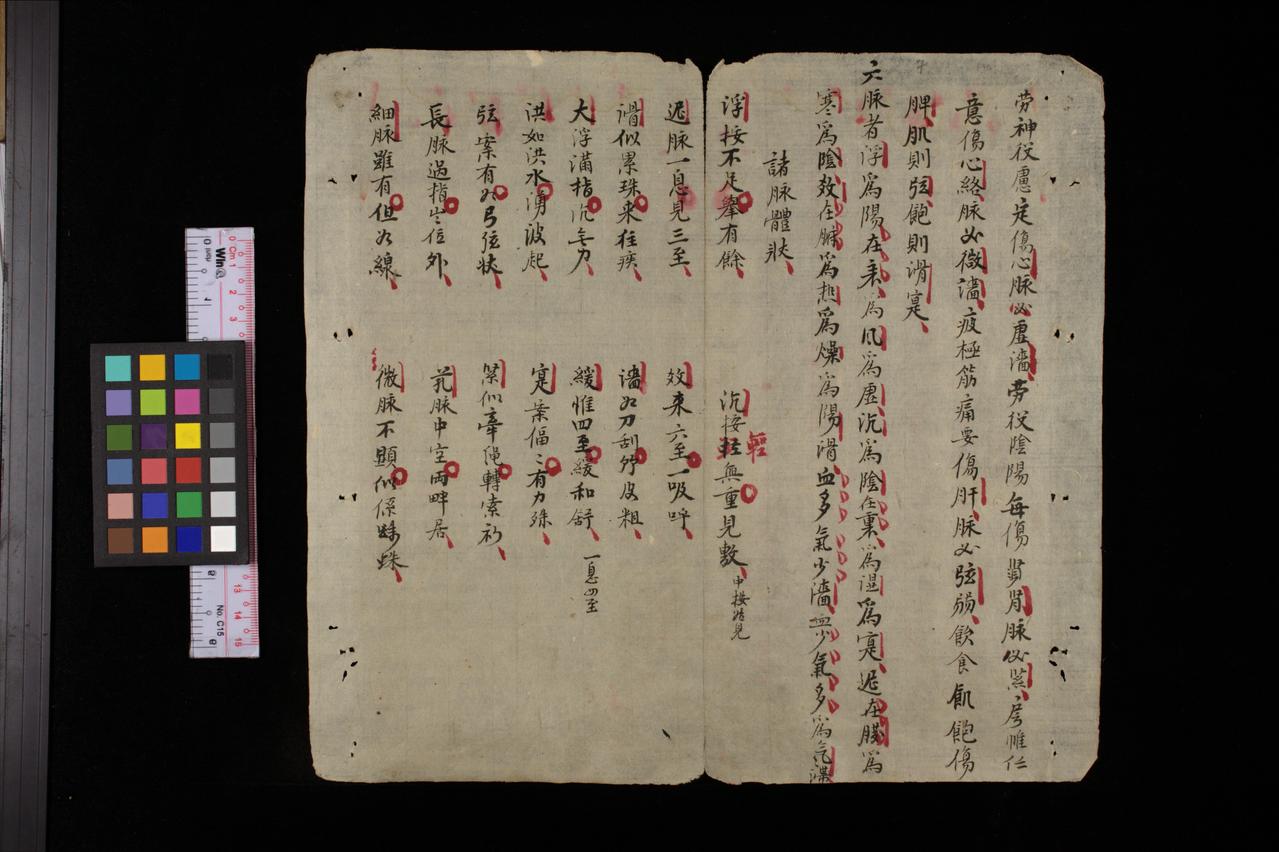 劳神役慮定傷心脉必虛濇劳役陰陽每傷腎腎脉必緊房帷任
意傷心絡脉必微濇疲極筋痛要傷肝脉必弦弱飲食飢飽傷
脾肌則弦飽則滑寔
六脉者浮爲陽在表爲風爲虛沉爲陰在裏爲湿爲寔迟在臟爲
寒爲陰数在腑爲热爲燥爲陽滑血多氣少濇血少氣多爲气滞
諸脉體狀
浮按不足舉有餘
沉按輕無重見数中按皆見
迟脉一息見三至
数来六至一吸呼
滑似累珠来往疾
濇如刀刮竹皮粗
大浮满指沉無力
緩惟四至緩和舒一息四至
洪如洪水湧波起
寔案偪〻有力殊
弦案有如弓弦状
緊似牽绳轉索初
長脉過指出位外
芤脉中空両畔居
細脉雖有但如線
微脉不顕似係蛛蛛
Win
Cm 1
2
3
13
14
15
No. C15